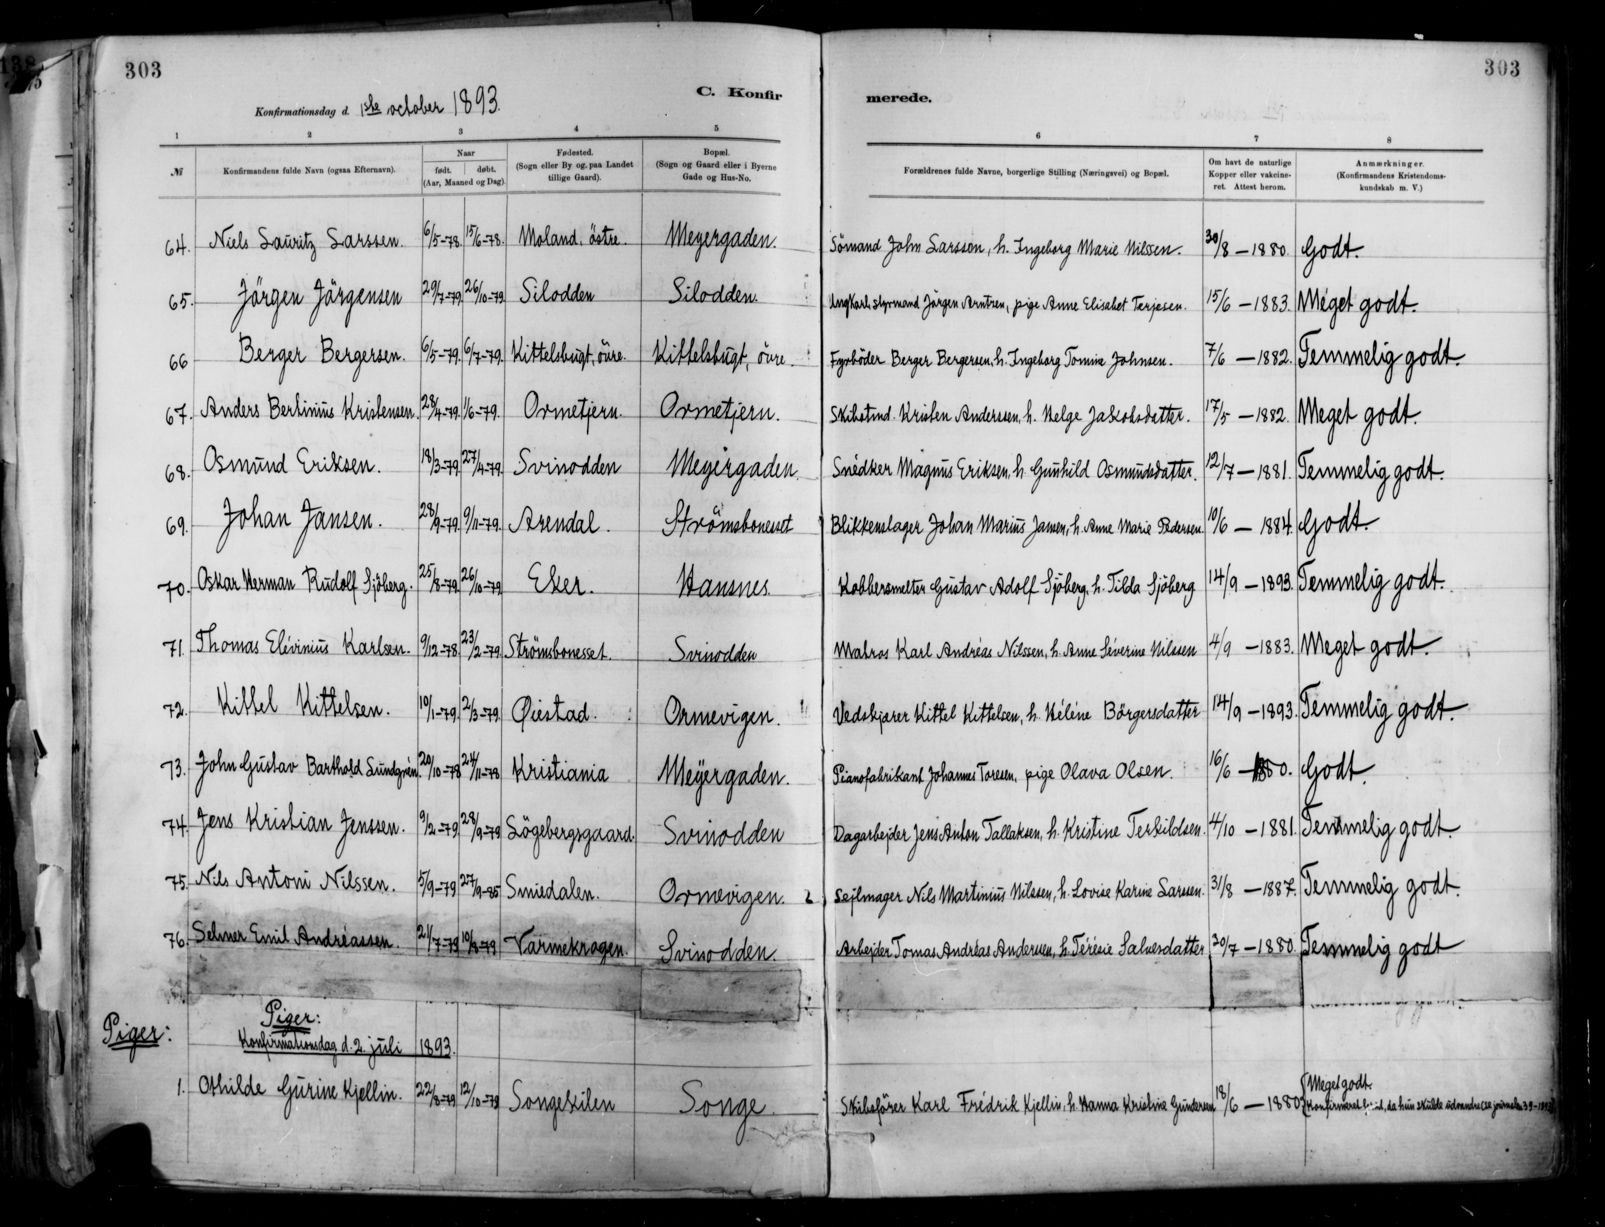 303
303
C. Konfirmerede.
Konfirmationsdag d. 1ste october 1893.
1 2 3 4 5 6 7 8
№ Konfirmandens fulde Navn (ogsaa Efternavn). Naar født. døbt. (Aar, Maaned og Dag). Fødested. (Sogn eller By og, paa Landet tillige Gaard). Bopæl. (Sogn og Gaard eller i Byerne Gade og Hus-No. Forældrenes fulde Navne, borgerlige Stilling (Næringsvei) og Bopæl. Om havt de naturlige Kopper eller vakcineret. Attest herom. Anmærkninger. (Konfirmandens Kristendomskundskab m. V.)
64. Niels Lauritz Larssen. 6/5-78. 15/6-78. Moland, östre. Meyergaden. Sömand John Larssen, h. Ingeborg Marie Nilssen. 30/8 – 1880. Godt.
65. Jörgen Jörgensen 29/7-79. 26/10-79. Silodden Silodden. Ungkarl, styrmand Jörgen Arntzen, pige Anne Elisabet Terjesen. 15/6 – 1883. Meget godt.
66 Berger Bergersen. 6/5-79. 6/7-79. Kittelsbugt, övre. Kittelsbugt, övre. Fyrböder Berger Bergersen, h. Ingeborg Tomine Johnsen. 7/6 – 1882. Temmelig godt.
67. Anders Bertinius Kristensen. 28/4-79. 1/6-79. Ormetjern. Ormetjern. Skibstmd. Kristen Anderssen, h. Helge Jakobsdatter. 17/5 – 1882. Meget godt.
68. Osmund Eriksen. 18/3-79. 27/4-79. Svinodden Meyergaden. Snedker Magnus Eriksen, h. Gunhild Osmundsdatter. 12/7 – 1881. Temmelig godt.
69. Johan Jansen. 28/9-79. 9/11-79. Arendal. Strömsbonesset Blikkenslager Johan Marius Jansen, h. Anne Marie Pedersen. 10/6 – 1884. Godt.
70. Oskar Herman Rudolf Sjöberg. 25/8-79. 26/10-79. Eker. Hansnes. Kobbersmelter Gustav Adolf Sjöberg, h. Tilda Sjöberg 14/9 – 1893. Temmelig godt.
71. Thomas Elevinius Karlsen. 9/12-78. 23/2-79. Strömsbonesset. Svinodden Matros Karl Andreas Nilssen, h. Anne Severine Nilssen 4/9 – 1883. Meget godt.
72. Kittel Kittelsen. 10/1-79. 2/3-79. Øiestad. Ormevigen. Vedskjærer Kittel Kittelsen, h. Helene Börgersdatter 14/9 – 1893. Temmelig godt.
73. John Gustav Barthold Lundgren. 20/10-78 24/11-78 Kristiania Meyergaden. Pianofabrikant Johannes Toresen, pige Olava Olsen. 16/6 – 1880. Godt.
74. Jens Kristian Jenssen. 9/2-79. 28/9-79 Lögebergsgaard. Svinodden Dagarbejder Jens Anton Tallaksen, h. Kristine Terkildsen. 4/10 – 1881. Temmelig godt.
75. Nils Antoni Nilssen. 5/9-79 27/9-85 Smiedalen. Ormevigen. Sejlmager Nils Martinius Nilssen, h. Lovise Karine Larssen. 31/8 – 1887. Temmelig godt.
76. Selmer Emil Andreassen. 21/7-79 Varmekrogen. Svinodden. Arbejder Tomas Andreas Andersen, h. Teresie Salvesdatter 20/7 – 1880. Temmelig godt
Piger:
Piger:
Konfirmationsdag d. 2. juli 1893.
1. Othilde Gurine Kjellin. 22/8-79 12/10-79 Songekilen Songe. Skibsförer Karl Fredrik Kjellin, h. Hanna Kristine Gundersen 18/6 – 1880. Meget godt.
Konfirmeret da hun skulde udvandre (se journalen 39-1893)